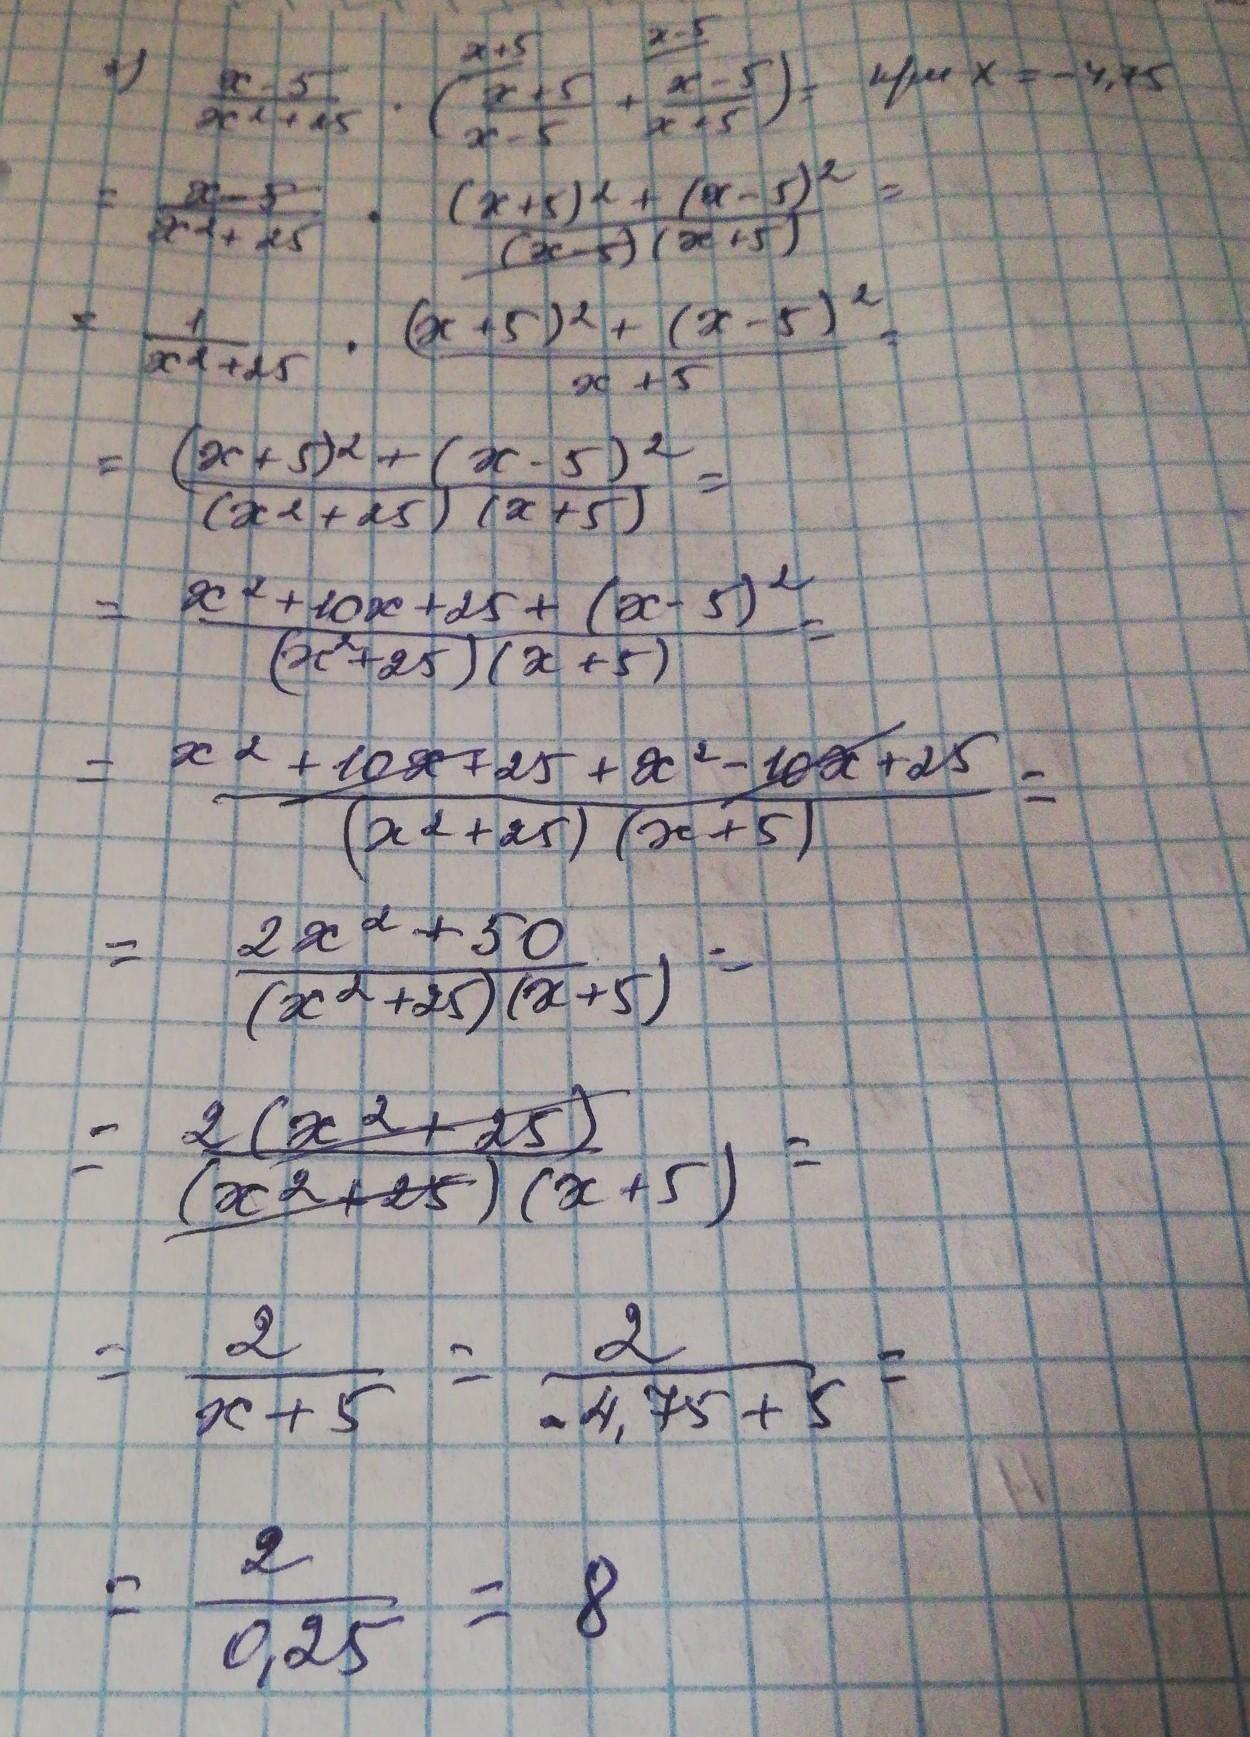 x+5 x-5
\frac{x-5}{x^2+25} \cdot \left(\frac{x+5}{x-5} + \frac{x-5}{x+5}\right) = при x = -4,75
= \frac{x-5}{x^2+25} \cdot \frac{(x+5)^2 + (x-5)^2}{(x-5)(x+5)} =
= \frac{1}{x^2+25} \cdot \frac{(x+5)^2 + (x-5)^2}{x+5} =
= \frac{(x+5)^2 + (x-5)^2}{(x^2+25)(x+5)} =
= \frac{x^2+10x+25+(x-5)^2}{(x^2+25)(x+5)} =
= \frac{x^2+10x+25+x^2-10x+25}{(x^2+25)(x+5)} =
= \frac{2x^2+50}{(x^2+25)(x+5)} =
= \frac{2(x^2+25)}{(x^2+25)(x+5)} =
= \frac{2}{x+5} = \frac{2}{-4,75+5} =
= \frac{2}{0,25} = 8